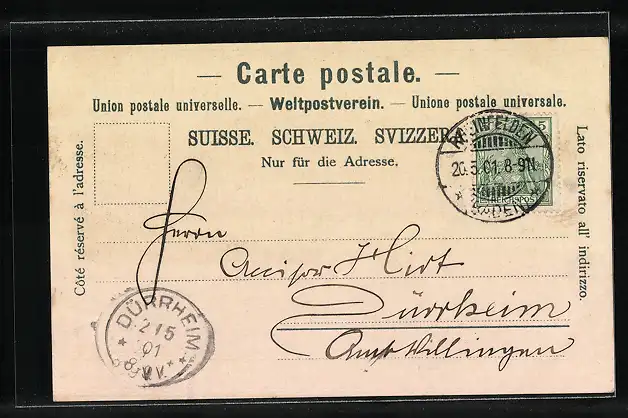 — Carte postale. —
Union postale universelle. — Weltpostverein. — Unione postale universale.
SUISSE. SCHWEIZ. SVIZZERA
Nur für die Adresse.
Côté réservé à l'adresse.
Lato riservato all' indirizzo.
5
RHEINFELDEN
20.5.01.8-9N.
BADEN
REICHSPOST
Herrn
Hirt
Dürrheim
Amt Villingen
DÜRRHEIM
21 5
01
8-9V.